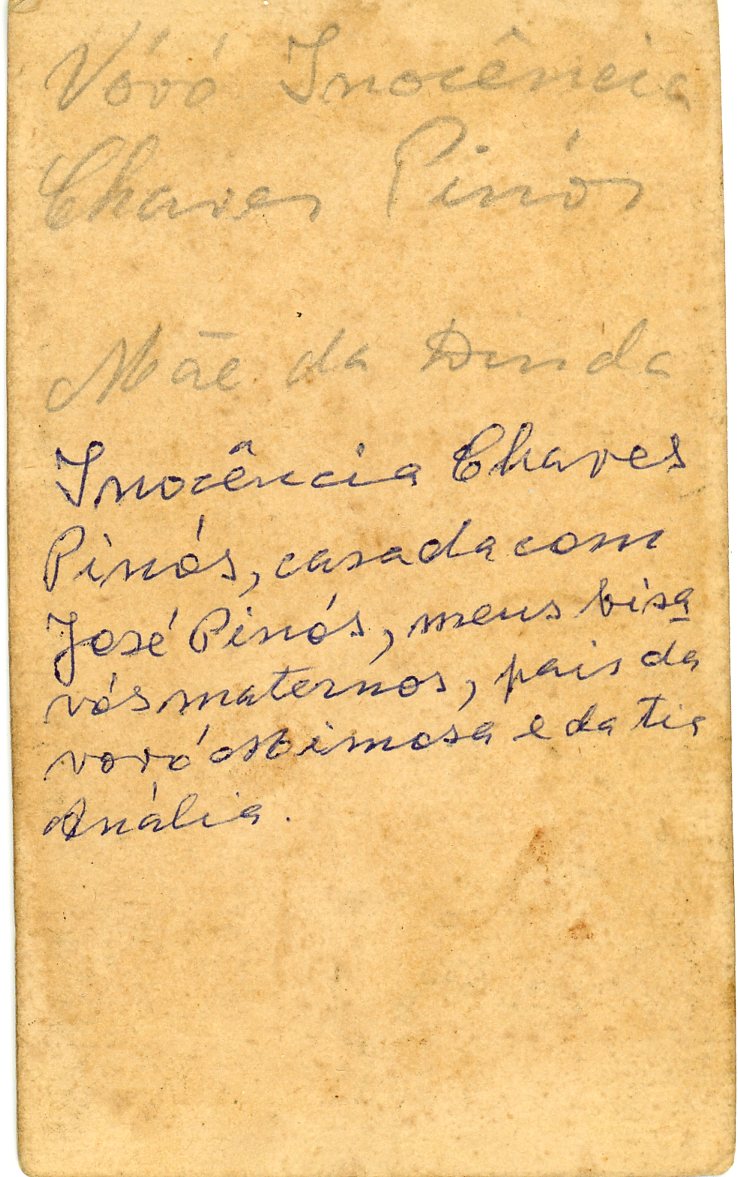 Vóvó Inocência
Chaves Pinós
Mãe da Dinda
Inocência Chaves
Pinós, casada com
José Pinós, meus bisa
vós maternos, pais da
vovó Mimosa e da tia
Anália.